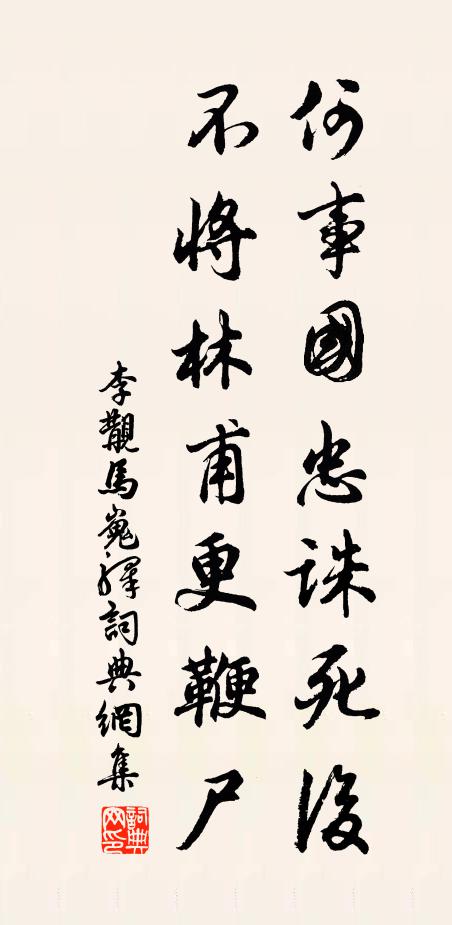 何事國忠誅死後
不將林甫更鞭尸
李覯馬嵬驛詞典網集
詞典網印